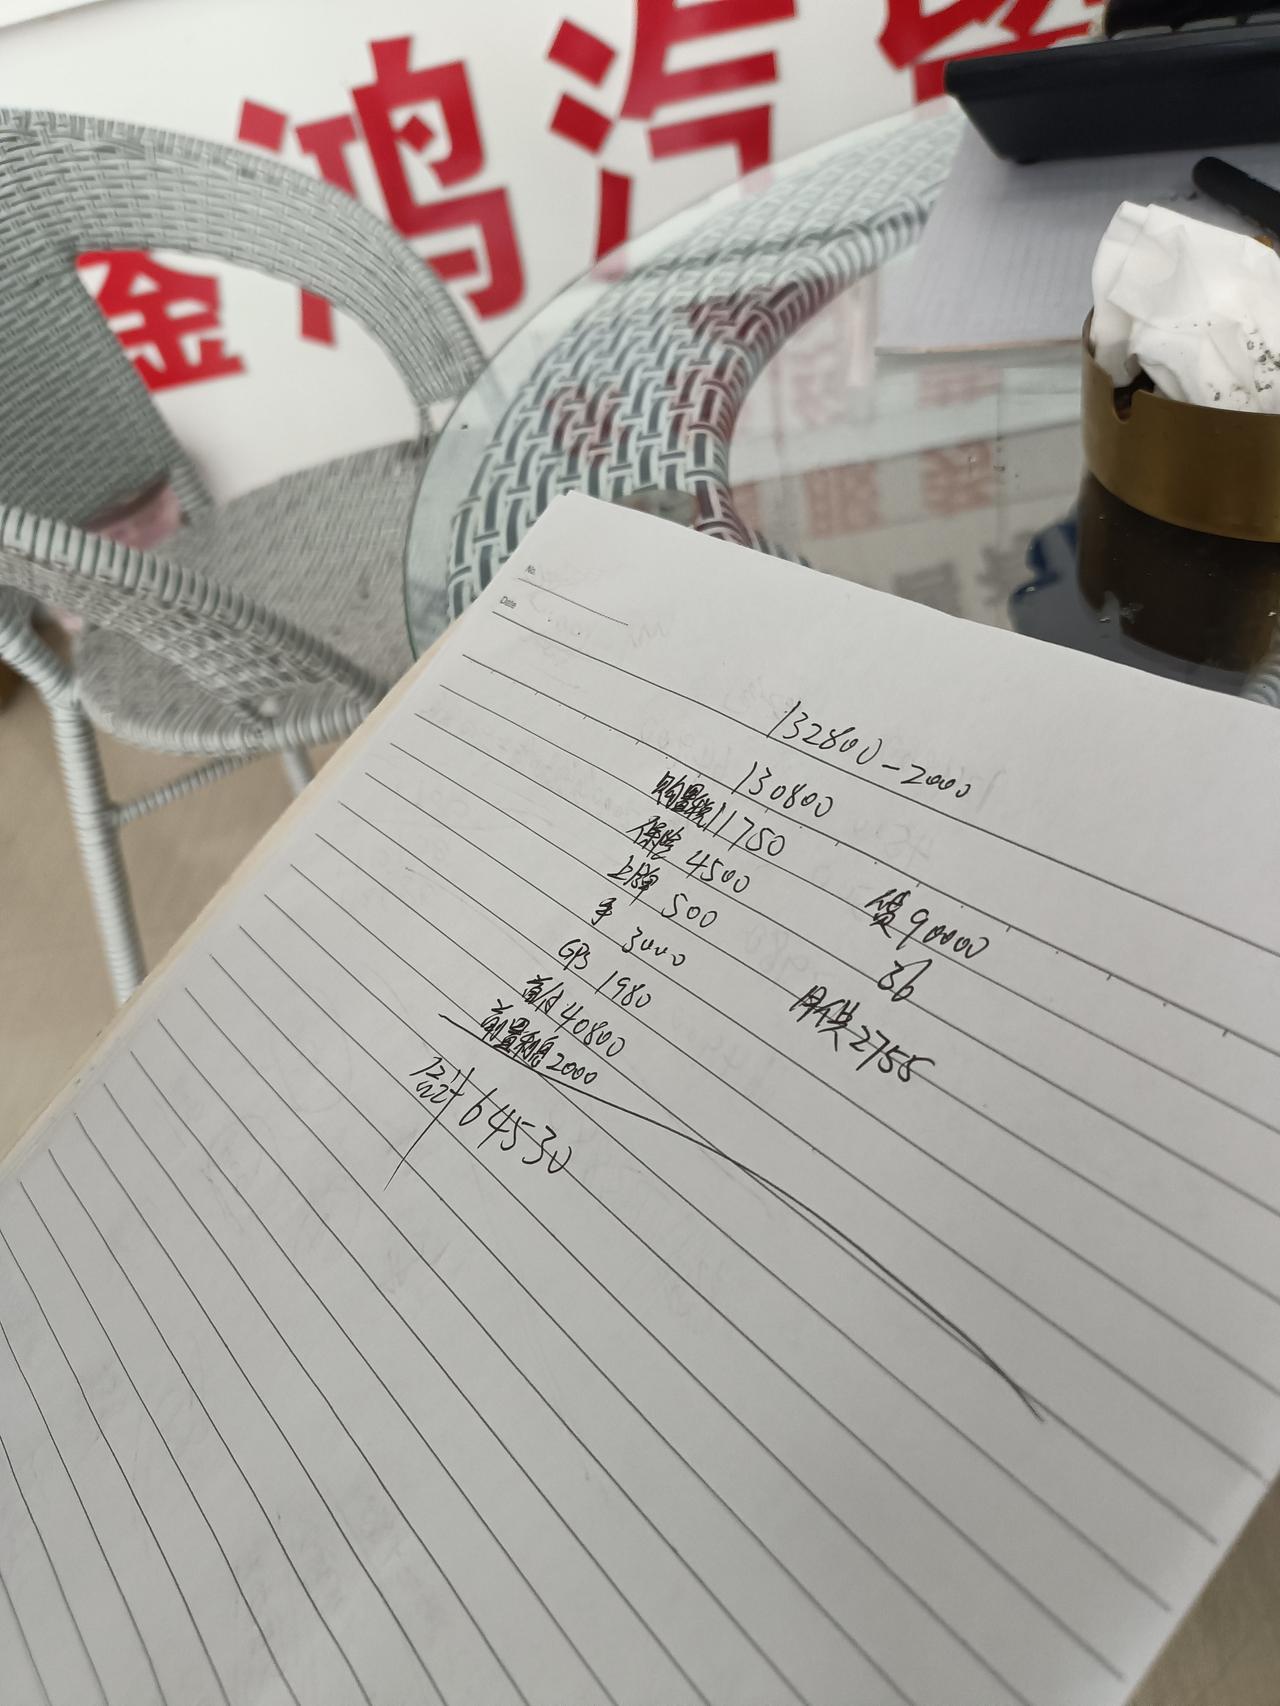 金鸿汽
No.
Date
132800-2000
130800
购置税11750
保险 4500
上牌 500
手 3000
GPS 1980
首付40800
前置利息2000
总计64530
贷90000
36
月供2755